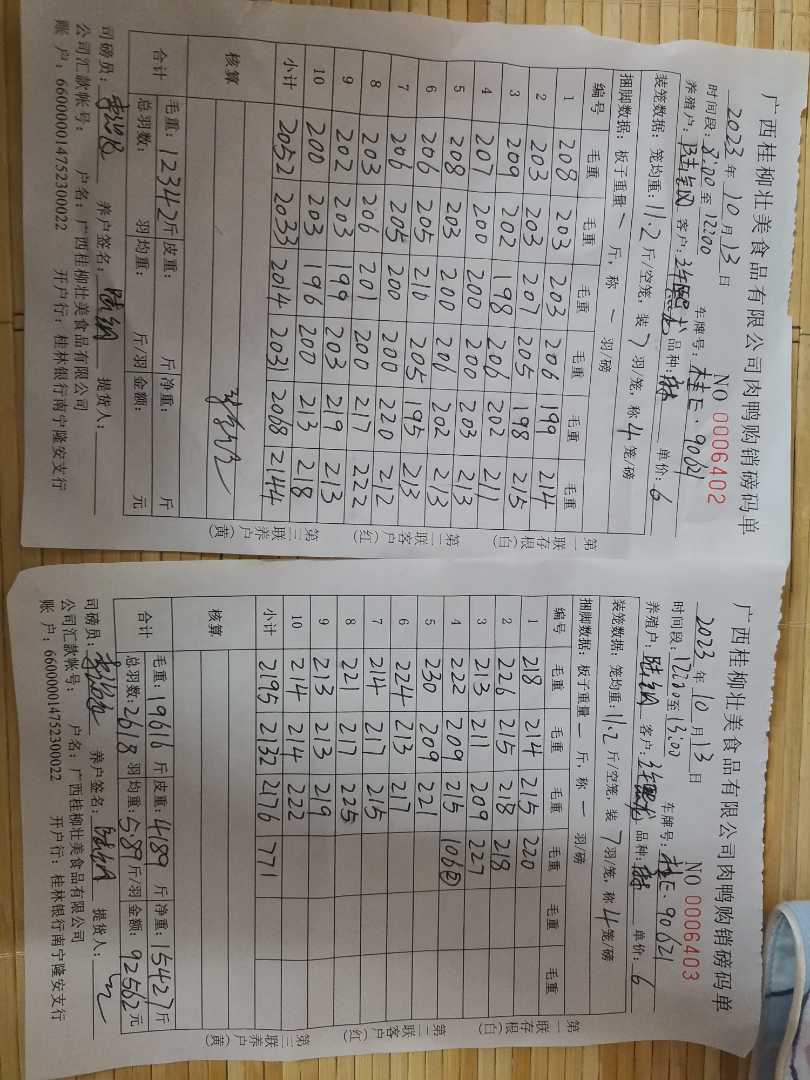 广西桂柳壮美食品有限公司肉鸭购销磅码单
2023年10月13日 NO 0006402
时间段：8:00至12:00 车牌号：桂E·90621
养殖户： 客户： 品种： 单价：6
装笼数据：笼均重：11.2斤/空笼，装7羽/笼，称4笼/磅
捆脚数据：板子重量一斤，称一羽/磅
编号 毛重 毛重 毛重 毛重 毛重 毛重
1 208 203 203 206 199 214
2 203 203 207 205 198 215
3 209 202 198 206 202 211
4 207 200 200 200 203 213
5 208 203 200 206 202 213
6 206 205 210 205 195 213
7 206 205 200 200 220 212
8 203 206 201 200 217 222
9 202 203 199 203 219 213
10 200 203 196 200 213 218
小计 2052 2033 2014 2031 2068 2144
核算
合计 毛重：12342斤 皮重： 斤 净重： 斤
总羽数： 羽 均重： 斤/羽 金额： 元
司磅员： 养户签名： 提货人：
公司汇款帐号： 户名：广西桂柳壮美食品有限公司
账户：660000014752300022 开户行：桂林银行南宁隆安支行
第一联存根（白） 第二联客户（红） 第三联养户（黄）
广西桂柳壮美食品有限公司肉鸭购销磅码单
2023年10月13日 NO 0006403
时间段：12:20至13:00 车牌号：桂E·90621
养殖户： 客户： 品种： 单价：6
装笼数据：笼均重：11.2斤/空笼，装7羽/笼，称4笼/磅
捆脚数据：板子重量一斤，称一羽/磅
编号 毛重 毛重 毛重 毛重 毛重 毛重
1 218 214 215 220
2 226 215 218 218
3 213 211 209 227
4 222 209 215 106②
5 230 209 221
6 224 213 217
7 214 217 215
8 221 217 225
9 213 213 219
10 214 214 222
小计 2195 2132 2176 771
核算
合计 毛重：19616斤 皮重：4189斤 净重：15427斤
总羽数：2618羽 均重：5.89斤/羽 金额：92562元
司磅员： 养户签名： 提货人：
公司汇款帐号： 户名：广西桂柳壮美食品有限公司
账户：660000014752300022 开户行：桂林银行南宁隆安支行
第一联存根（白） 第二联客户（红） 第三联养户（黄）